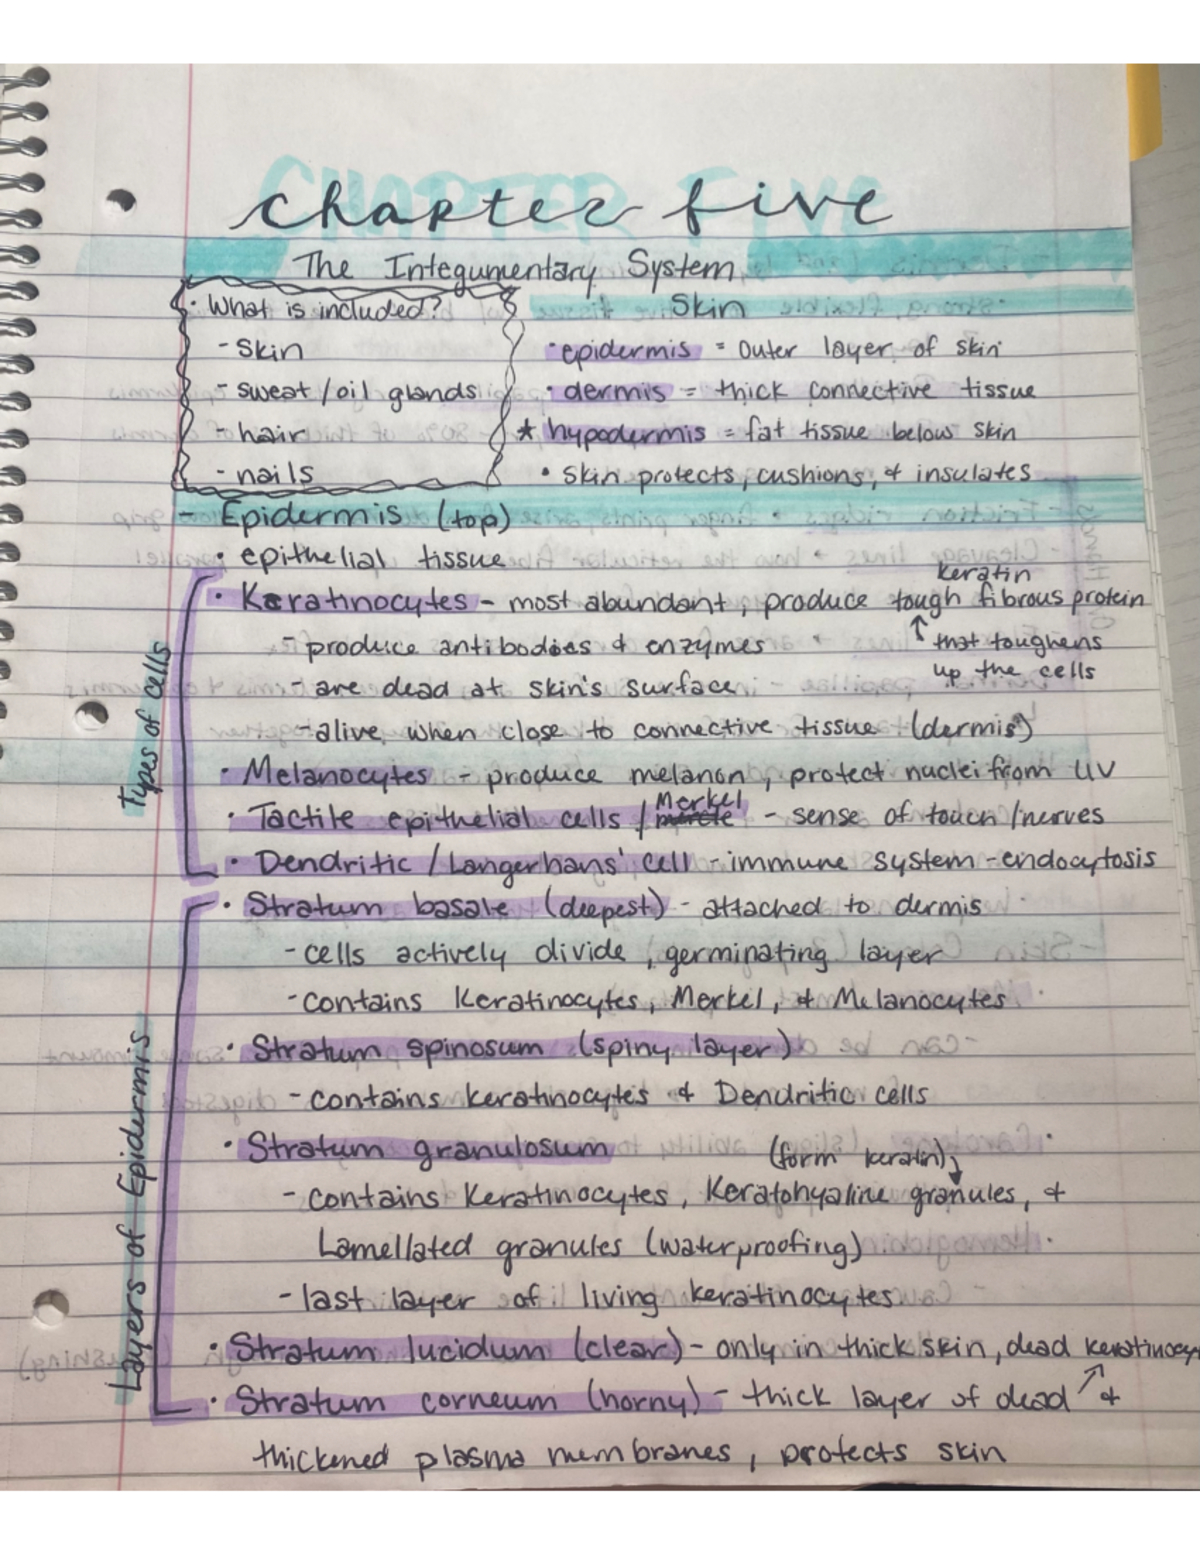 chapter five
The Integumentary System
· What is included?
- Skin
- sweat/oil glands
- hair
- nails
Skin
· epidermis = outer layer of skin
· dermis = thick connective tissue
★ hypodermis = fat tissue below skin
• Skin protects, cushions, & insulates
- Epidermis (top)
· epithelial tissue
Types of cells
keratin
· Keratinocytes - most abundant, produce tough fibrous protein
↑ that toughens
up the cells
- produce antibodies & enzymes
- are dead at skin's surface
- alive when close to connective tissue (dermis)
· Melanocytes - produce melanon, protect nuclei from UV
· Tactile epithelial cells / Merkel - sense of touch/nerves
· Dendritic / Langerhans' cell - immune system - endocytosis
Layers of Epidermis
· Stratum basale (deepest) - attached to dermis
- cells actively divide, germinating layer
- contains Keratinocytes, Merkel, & Melanocytes
· Stratum spinosum (spiny layer)
- contains keratinocytes & Dendritic cells
· Stratum granulosum
(form keratin)
- contains Keratinocytes, Keratohyaline granules, &
Lamellated granules (waterproofing)
- last layer of living keratinocytes
· Stratum lucidum (clear) - only in thick skin, dead keratinocy
· Stratum corneum (horny) - thick layer of dead ↗ &
thickened plasma membranes, protects skin